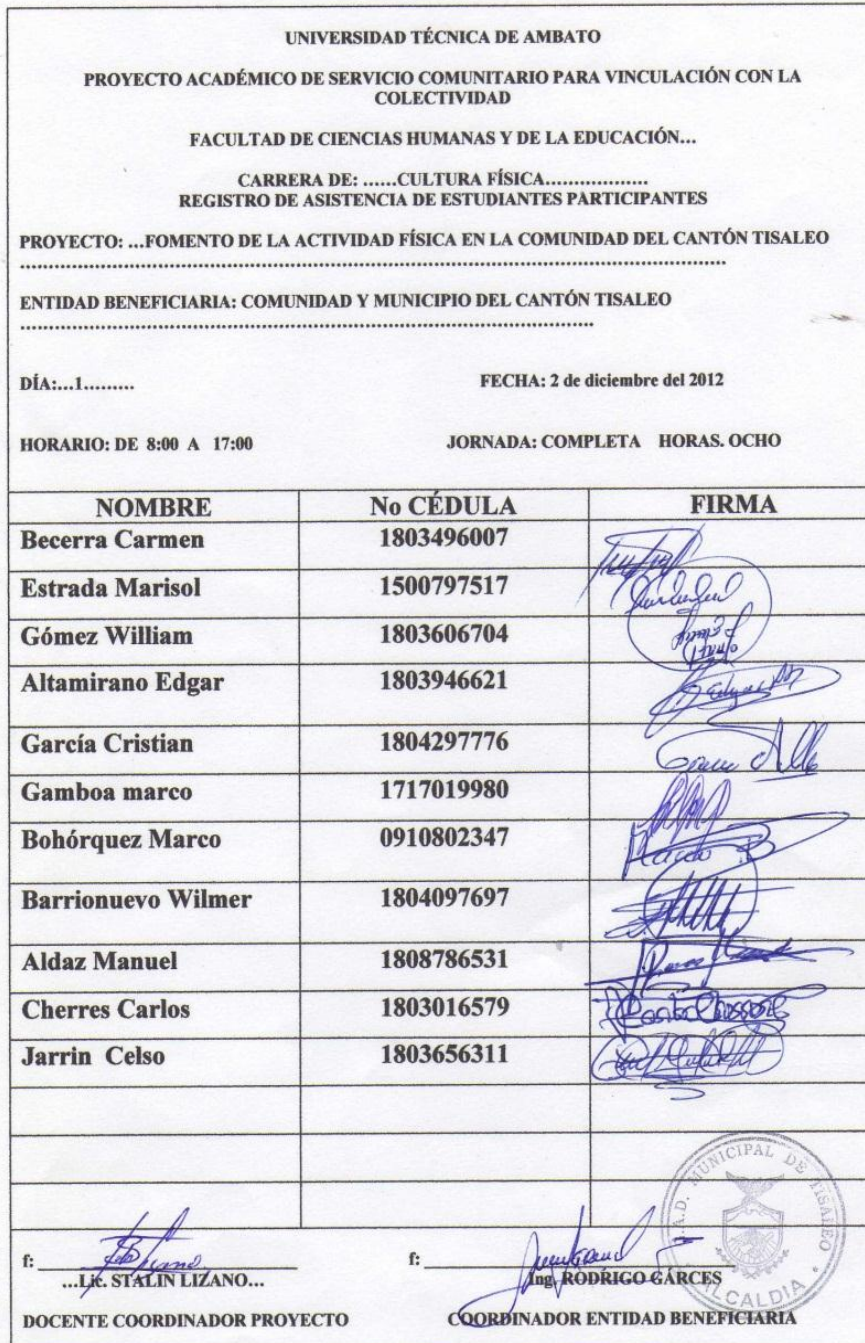 UNIVERSIDAD TÉCNICA DE AMBATO
PROYECTO ACADÉMICO DE SERVICIO COMUNITARIO PARA VINCULACIÓN CON LA
COLECTIVIDAD
FACULTAD DE CIENCIAS HUMANAS Y DE LA EDUCACIÓN...
CARRERA DE: ......CULTURA FÍSICA..................
REGISTRO DE ASISTENCIA DE ESTUDIANTES PARTICIPANTES
PROYECTO: ...FOMENTO DE LA ACTIVIDAD FÍSICA EN LA COMUNIDAD DEL CANTÓN TISALEO
ENTIDAD BENEFICIARIA: COMUNIDAD Y MUNICIPIO DEL CANTÓN TISALEO
DÍA:...1......... FECHA: 2 de diciembre del 2012
HORARIO: DE 8:00 A 17:00 JORNADA: COMPLETA HORAS. OCHO
NOMBRE No CÉDULA FIRMA
Becerra Carmen 1803496007
Estrada Marisol 1500797517
Gómez William 1803606704
Altamirano Edgar 1803946621
García Cristian 1804297776
Gamboa marco 1717019980
Bohórquez Marco 0910802347
Barrionuevo Wilmer 1804097697
Aldaz Manuel 1808786531
Cherres Carlos 1803016579
Jarrin Celso 1803656311
G.A.D. MUNICIPAL DE TISALEO
ALCALDIA
f: f:
...Lic. STALIN LIZANO... Ing. RODRIGO GÁRCES
DOCENTE COORDINADOR PROYECTO COORDINADOR ENTIDAD BENEFICIARIA